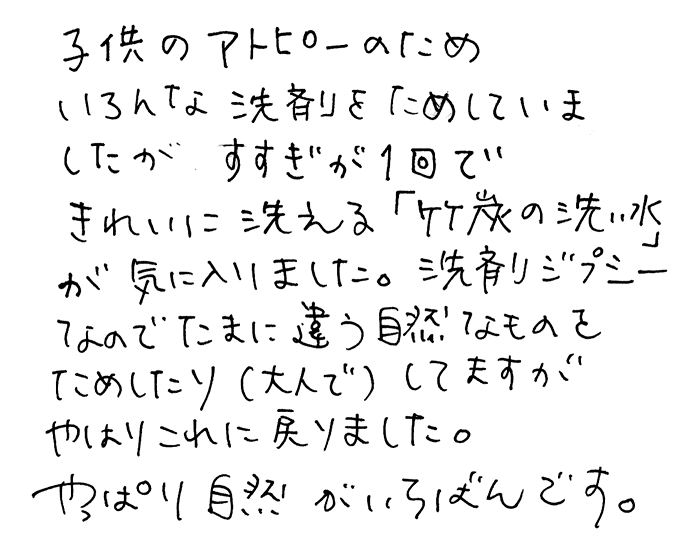 子供のアトピーのため
いろんな洗剤をためしていま
したが すすぎが1回で
きれいに洗える「竹炭の洗い水」
が気に入りました。洗剤ジプシー
なのでたまに違う自然なものを
ためしたり(大人で)してますが
やはりこれに戻りました。
やっぱり自然がいちばんです。